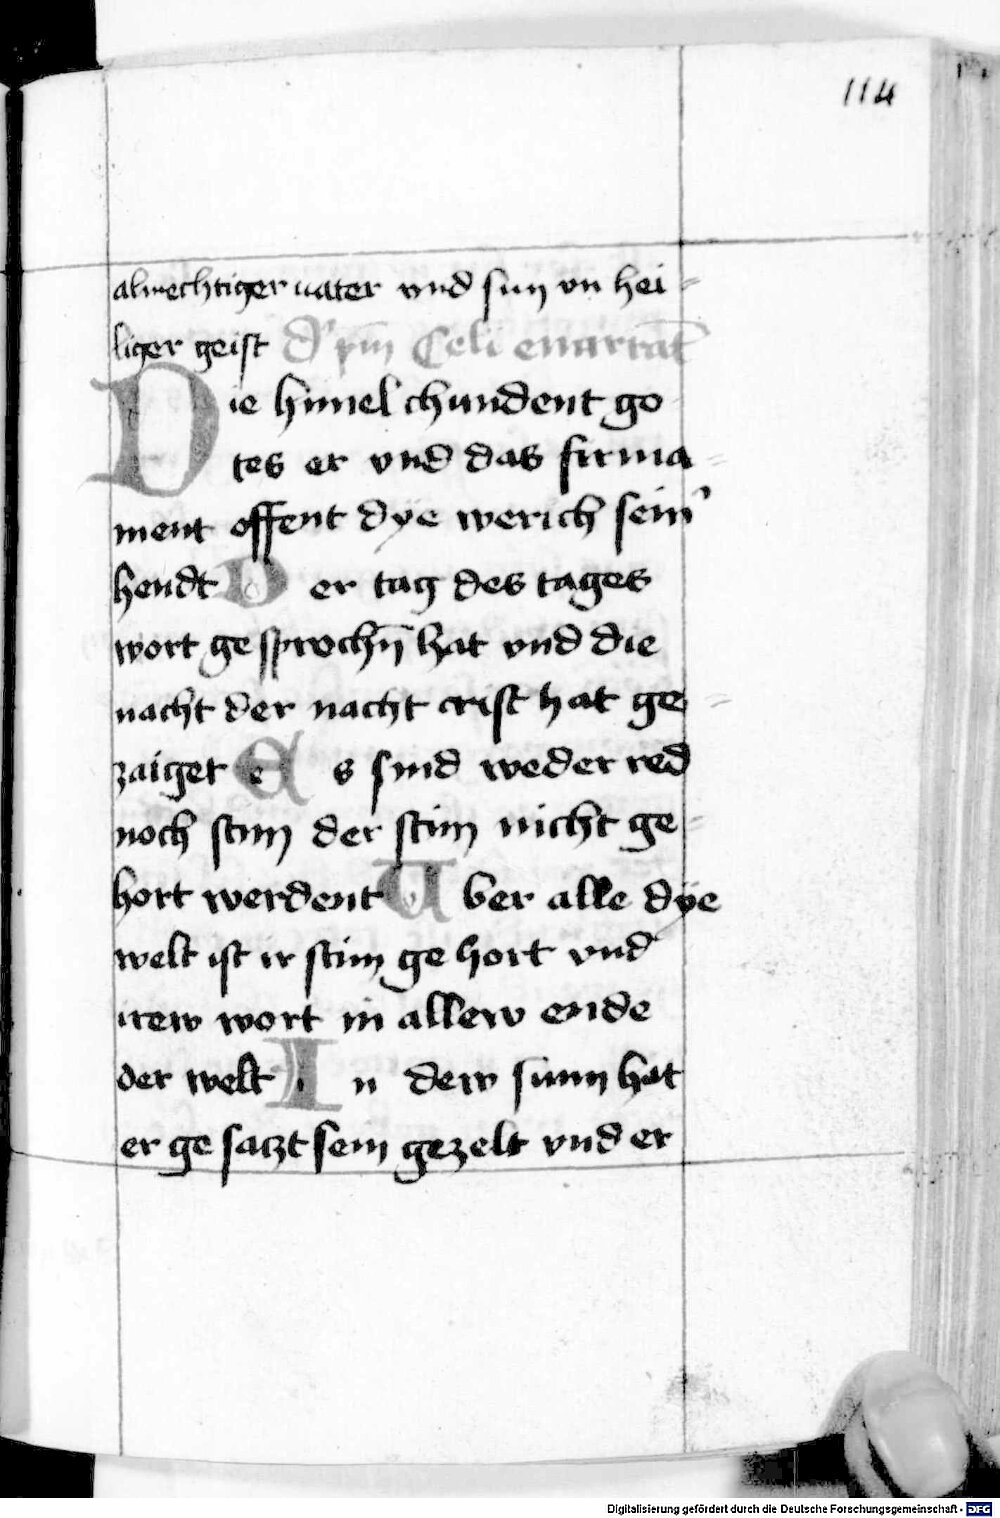 114
almechtiger uater vnd sun vn hei=
liger geist Dˀ psm̄ Celi enarrāt
Die himel chundent go
tes er vnd das firma=
ment offent dÿe werich seinˀ
hendt Der tag des tages
wort gesprochn̄ hat vnd die
nacht der nacht crist hat ge=
zaiget Es sind weder red
noch stim der stim nicht ge=
hort werdent Uber alle dÿe
welt ist ir stim gehort vnd
irew wort in allew ende
der welt In dew sunn hat
er gesaczt sein gezelt vnd er
Digitalisierung gefördert durch die Deutsche Forschungsgemeinschaft - DFG